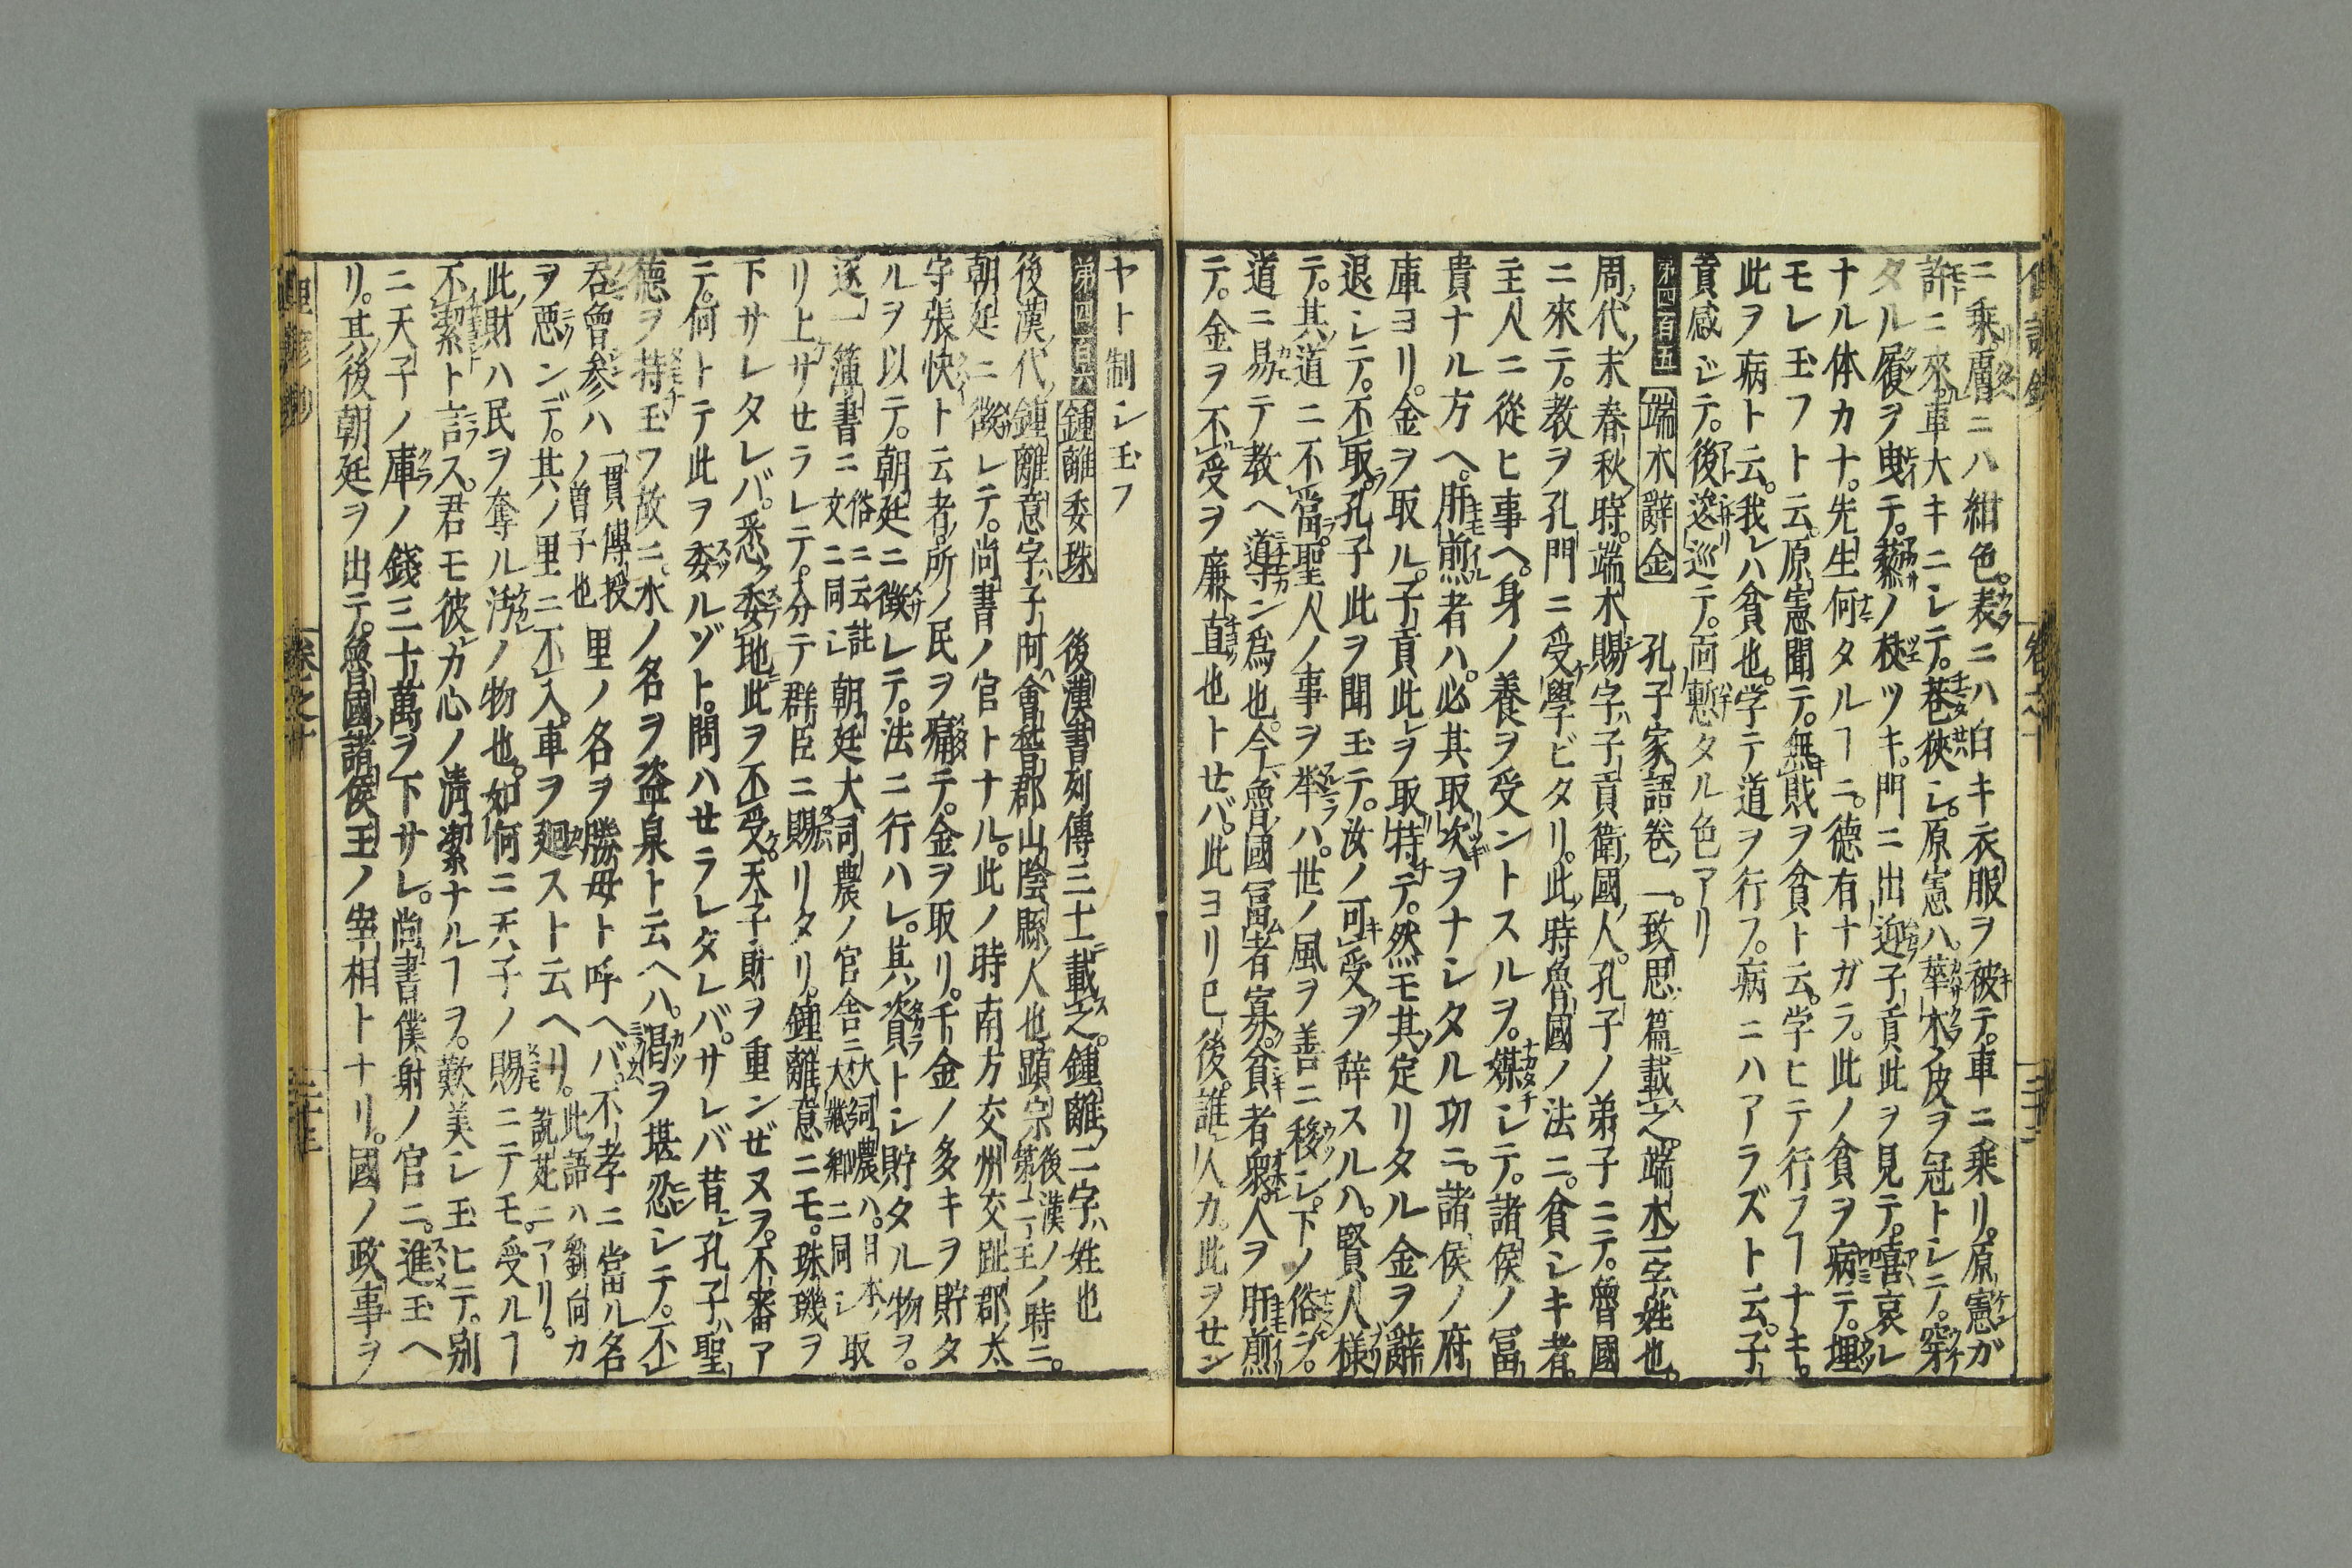 ニ乘。層ニハ紺色。表ニハ白キ衣服ヲ被テ。車ニ乘リ。原憲ガ
許ニ來。車大キニシテ。巷狹シ。原憲ハ。華木ノ皮ヲ冠トシテ。穿
タル履ヲ曳テ。藜ノ杖ツキ。門ニ出迎子貢此ヲ見テ。嘻哀レ
ナル体カナ。先生何タルヿニ。德有ナガラ。此ノ貧ヲ病テ。埋
モレ玉フト云。原憲聞テ。無財ヲ貧ト云。学ヒテ行フヿナキ。
此ヲ病ト云。我レハ貧也。学テ道ヲ行フ。病ニハアラズト云。子
貢感ジテ。後逡巡テ。面慙タル色アリ
第四百五 端木辭金 孔子家語卷一。致思篇載之。端木二字姓也。
周代末春秋時。端木賜字子貢衛國人。孔子ノ弟子ニテ。魯國
ニ來テ。教ヲ孔門ニ受學ビタリ。此時魯國ノ法ニ。貧シキ者。
主人ニ從ヒ事ヘ。身ノ養ヲ受ントスルヲ。媒シテ。諸侯ノ冨
貴ナル方ヘ。肝煎者ハ。必其取次ヲナシタル功ニ。諸侯ノ府
庫ヨリ。金ヲ取ル。子貢此レヲ取持テ。然モ其定リタル金ヲ辭
退シテ。不取。孔子此ヲ聞玉テ。汝ノ可受ヲ辞スルハ。賢人樣
テ。其道ニ不當。聖人ノ事ヲ举ハ。世ノ風ヲ善ニ移シ。下ノ俗ヲ。
道ニ易テ教ヘ導ン爲也。今魯國冨者寡。貧者衆。人ヲ肝煎
テ。金ヲ不受ヲ廉直也トせバ。此ヨリ已後。誰人カ。此ヲせン
ヤト制シ玉フ
第四百六 鍾離委珠 後漢書列傳三十一載之。鍾離二字姓也
後漢代鍾離意字子阿會稽郡山陰縣人也顕宗後漢ノ第二王ノ時ニ。
朝廷ニ徴レテ。尚書ノ官トナル。此ノ時南方交州交趾郡太
守張恢ト云者。所ノ民ヲ痛テ。金ヲ取リ。千金ノ多キヲ貯タ
ルヲ以テ。朝廷ニ徴レテ。法ニ行ハレ。其資トシ貯タル物ヲ。
逐一簿書ニ俗ニ云註文ニ同シ朝廷大詞農ノ官舎ニ大詞農ハ。日本大藏卿ニ同シ取
リ上サせラレテ。分テ群臣ニ賜リタリ。鍾離意ニモ。珠璣ヲ
下サレタレバ。悉ク委地此ヲ不受。天子財ヲ重ンぜヌヲ。不審ア
テ。何トテ此ヲ委ルゾト。問ハせラレタレバ。サレバ昔シ孔子ハ聖
德ヲ持玉フ故ニ。水ノ名ヲ盗泉ト云ヘハ。渇ヲ堪忍シテ。不
呑曾参ハ一貫傳授ノ曽子也里ノ名ヲ勝母ト呼ヘバ。不孝ニ當ル名
ヲ惡ンデ。其ノ里ニ不入。車ヲ廻スト云ヘリ。此語ハ劉向カ説苑ニアリ。
此財ハ民ヲ奪ル汚ノ物也。如何ニ天子ノ賜ニテモ。受ルヿ
不潔ト言ス。君モ彼カ心ノ清潔ナルヿヲ。歎美シ玉ヒテ。別
ニ天子ノ庫ノ錢三十萬ヲ下サレ。尚書僕射ノ官ニ。進玉ヘ
リ。其後朝廷ヲ出テ。魯國諸侯王ノ宰相トナリ。國ノ政事ヲ